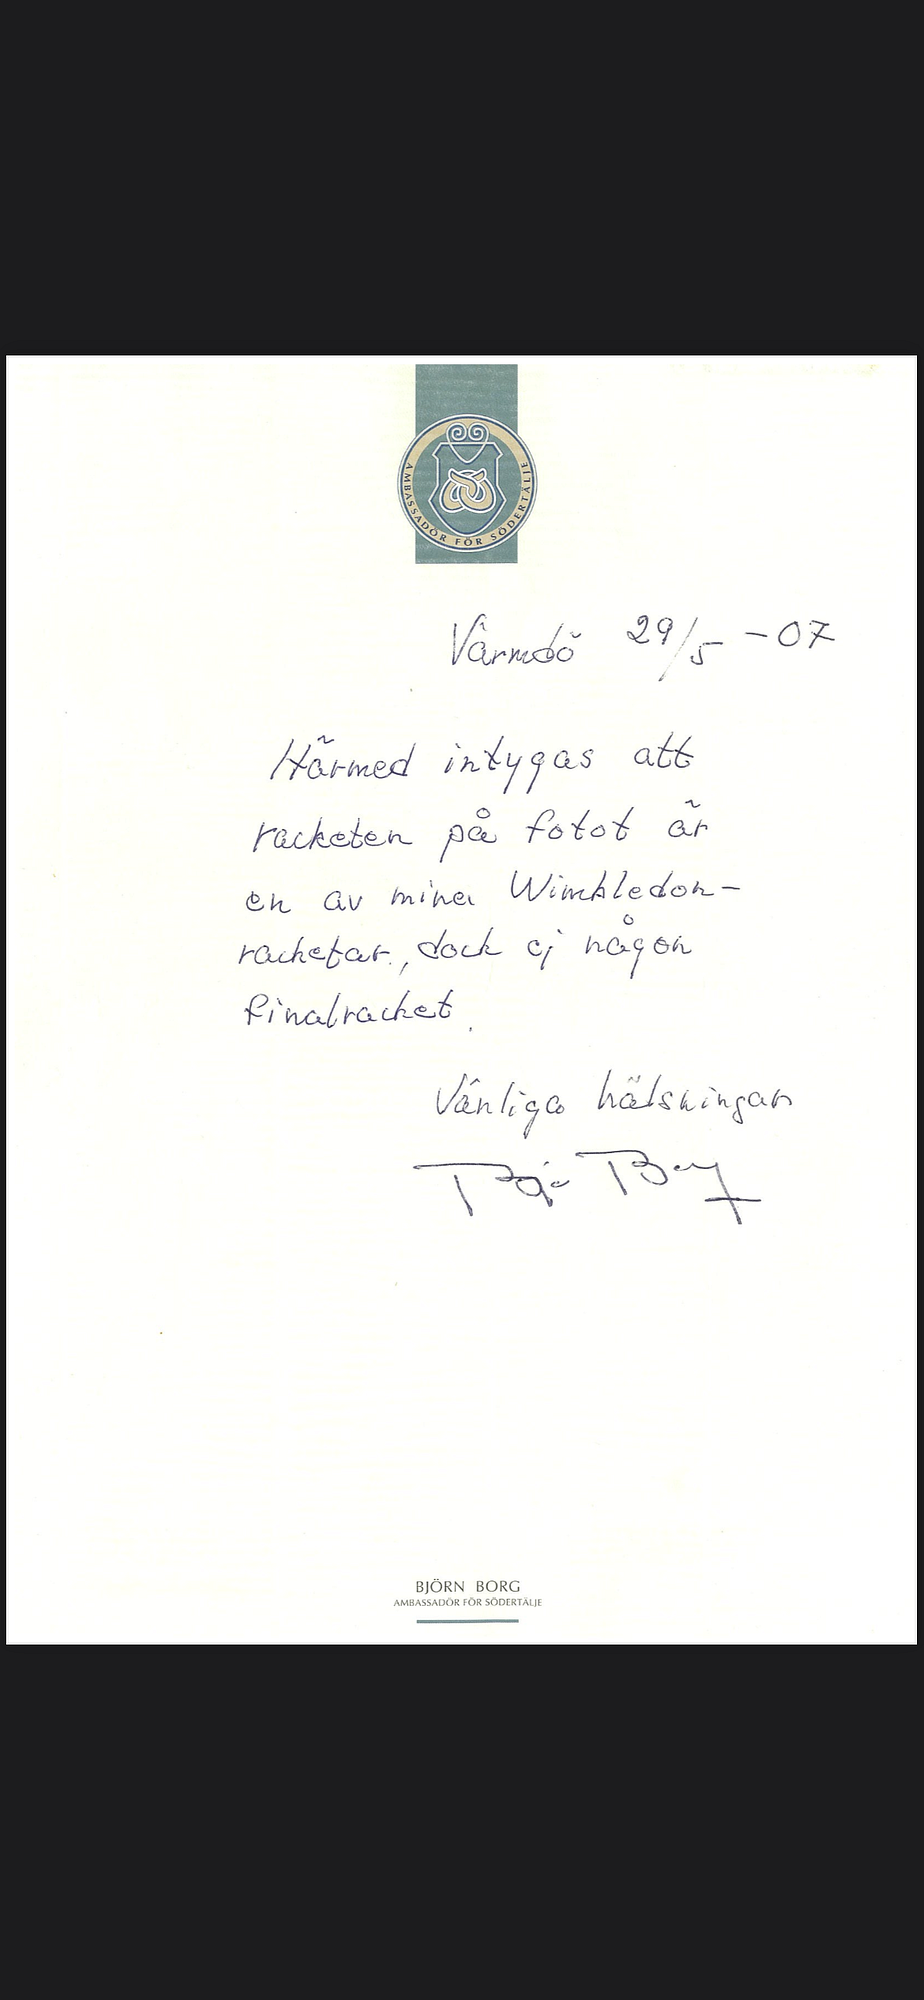 AMBASSADÖR FÖR SÖDERTÄLJE
Värmdö 29/5 -07
Härmed intygas att
racketen på fotot är
en av mina Wimbledon-
racketar, dock ej någon
finalracket.
Vänliga hälsningar
Björn Borg
BJÖRN BORG
AMBASSADÖR FÖR SÖDERTÄLJE